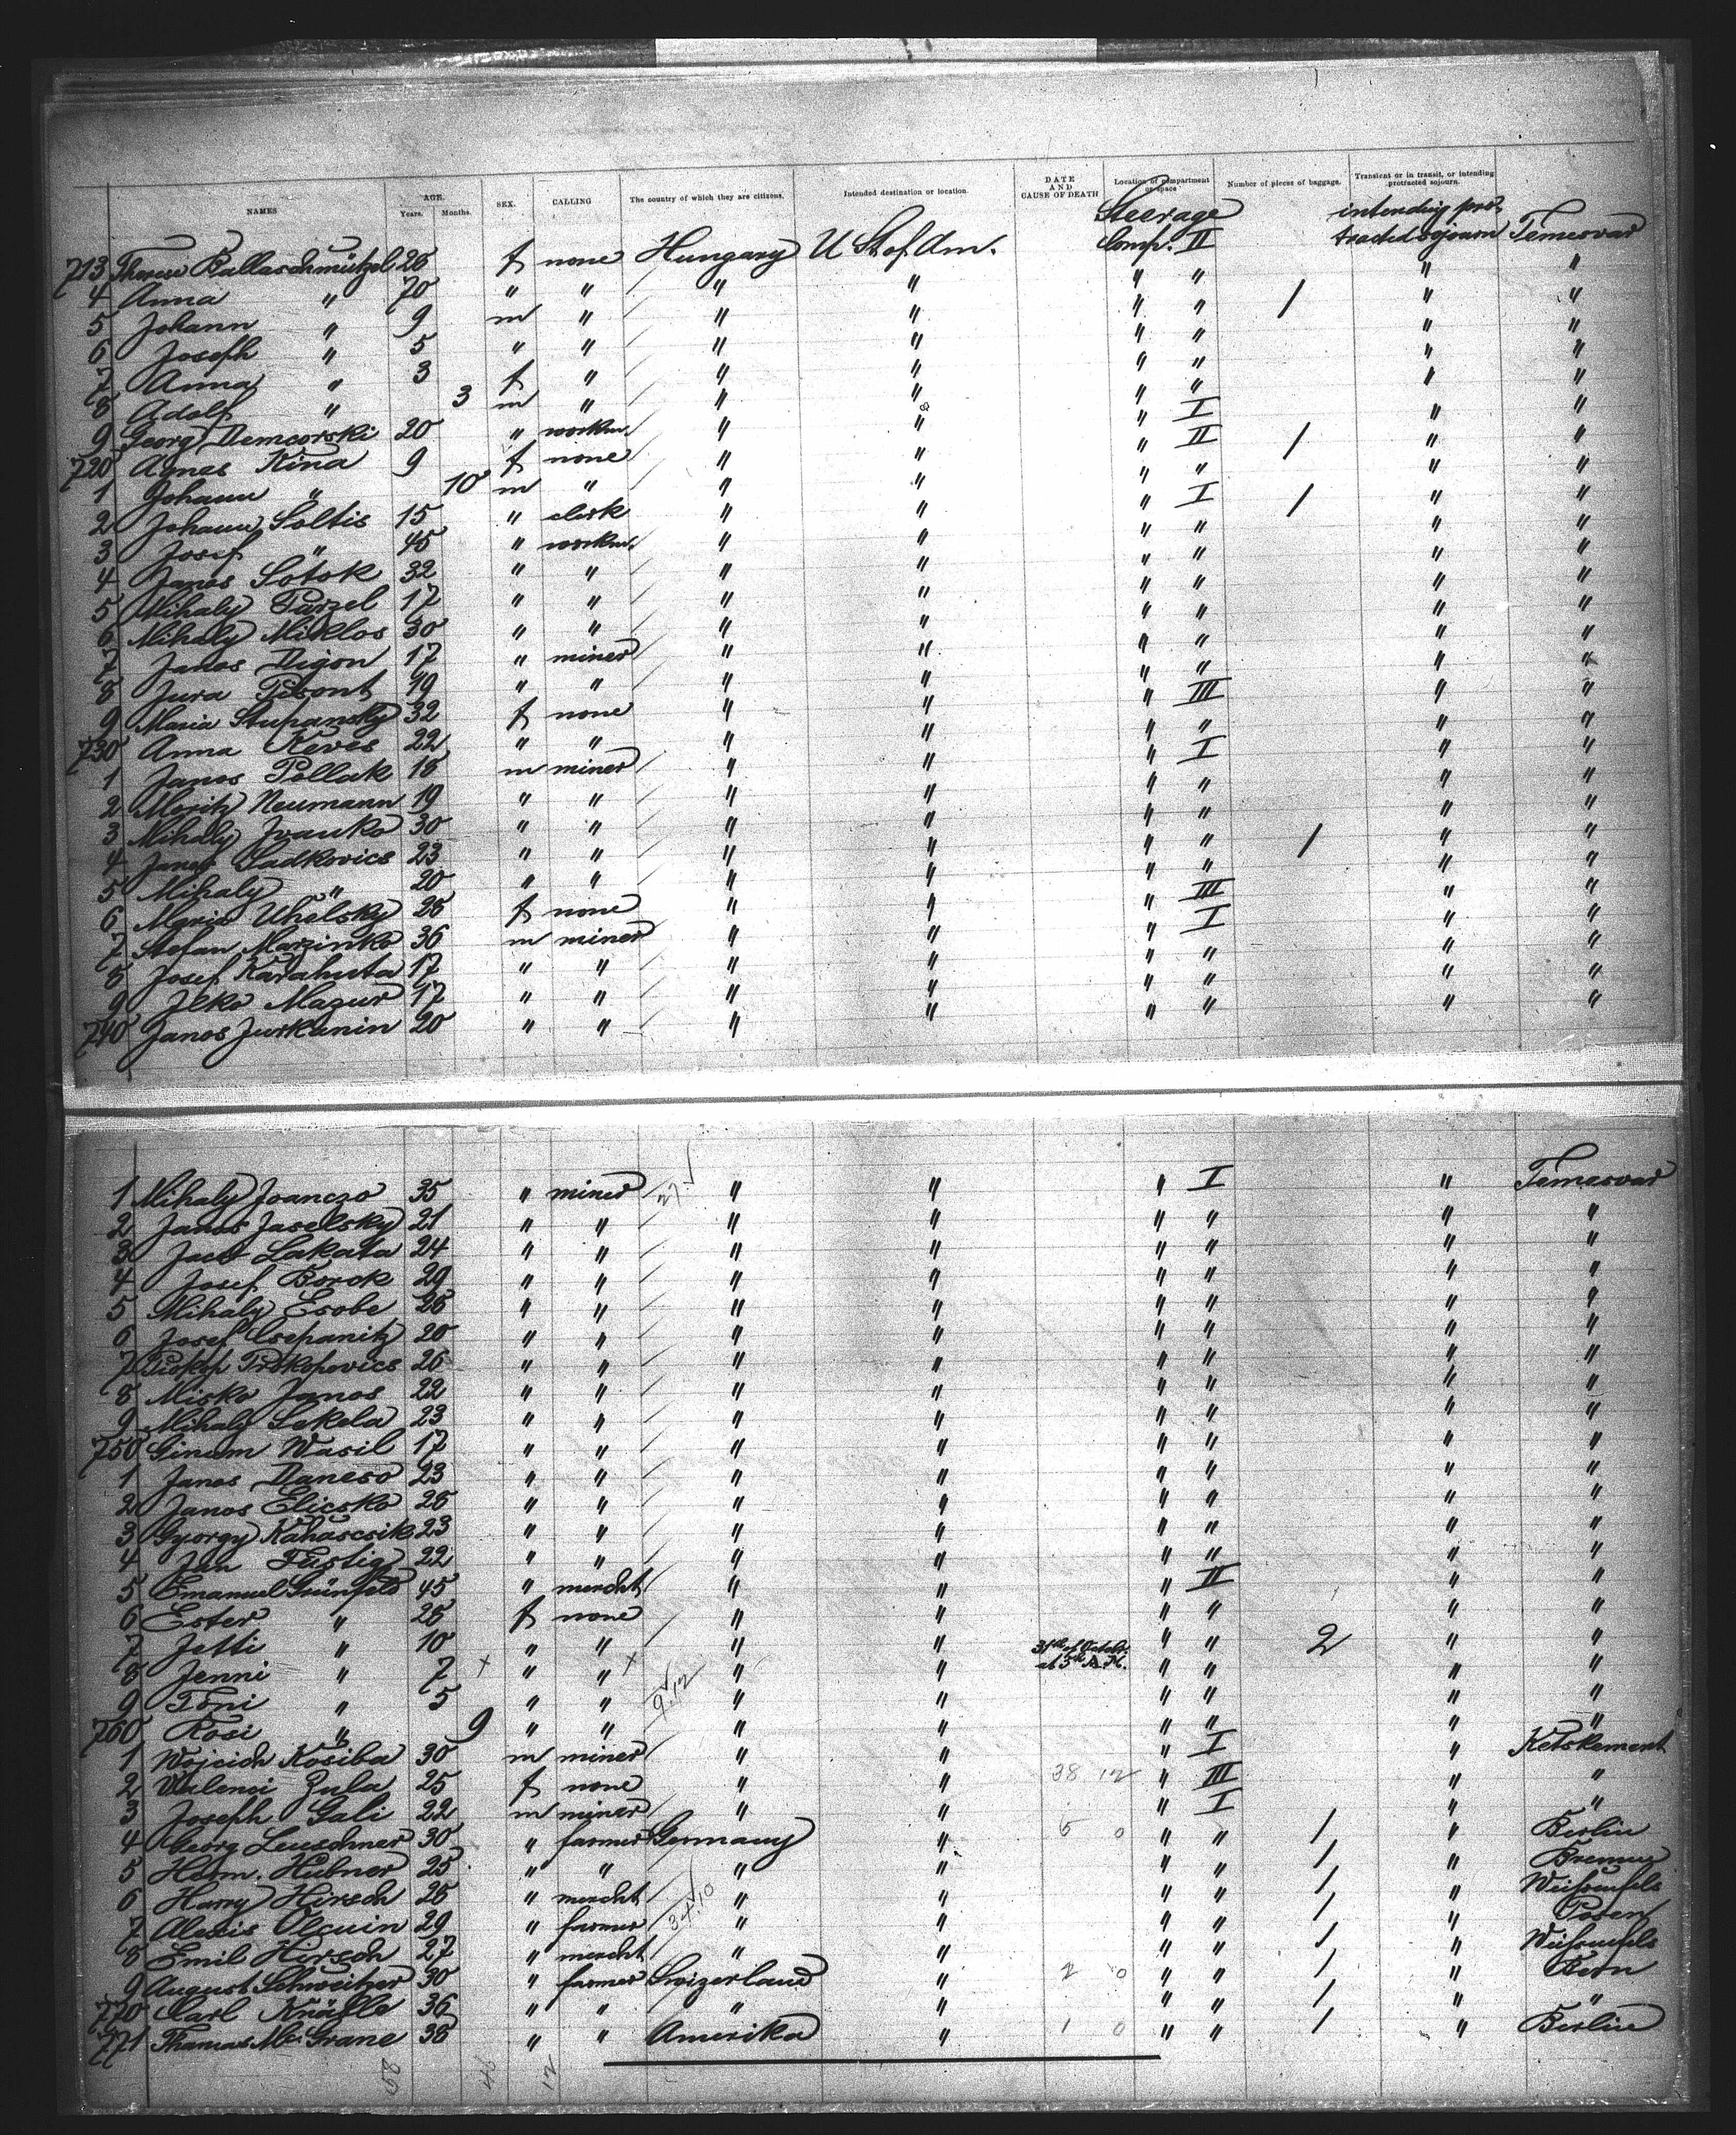 NAMES AGE. Years. Months. SEX. CALLING The country of which they are citizens. Intended destination or location. DATE AND CAUSE OF DEATH Location of compartment or space Number of pieces of baggage. Transient or in transit, or intending protracted sojourn.
Steerage intending pro-
713 Therese Ballaschmützel 26 f none Hungary U St. of Am. Comp. II tracted sojourn Temesvar
4 Anna " 70 " " " " " " / " "
5 Johann " 9 m " " " " " " "
6 Joseph " 5 " " " " " " " "
7 Anna " 3 f " " " " " " "
8 Adolf " 3 m " " " " " " "
9 Georg Demcorski 20 " workm. " " " I " "
720 Agnes Kina 9 f none " " " II / " "
1 Johann " 10 m " " " " " " "
2 Johann Soltis 15 " clerk " " " I / " "
3 Josef " 45 " workm. " " " " " "
4 Janos Sotok 32 " " " " " " " "
5 Mihaly Purzel 17 " " " " " " " "
6 Mihaly Miklos 30 " " " " " " " "
7 Janos Digon 17 " miner " " " " " "
8 Jura Pisont 19 " " " " " " " "
9 Maria Stupansky 32 f none " " " III " "
730 Anna Keves 22 " " " " " " " "
1 Janos Pollak 18 m miner " " " I " "
2 Moritz Neumann 19 " " " " " " " "
3 Mihaly Ivanko 30 " " " " " " " "
4 Janos Sadkovics 23 " " " " " " / " "
5 Mihaly " 20 " " " " " " " "
6 Maria Uhelsky 28 f none " " " III " "
7 Stefan Marzinko 36 m miner " " " I " "
8 Josef Karahuta 17 " " " " " " " "
9 Ilko Mazur 17 " " " " " " " "
740 Janos Jurkanin 20 " " " " " " " "
1 Mihaly Joanczo 35 " miner " " " I " Temesvar
2 Janos Jaselsky 21 " " " " " " " "
3 Jacob Lakata 24 " " " " " " " "
4 Josef Borok 29 " " " " " " " "
5 Mihaly Esobe 26 " " " " " " " "
6 Josef Csepanitz 20 " " " " " " " "
7 Prokop Prokopovics 26 " " " " " " " "
8 Misko Janos 22 " " " " " " " "
9 Mihaly Sekela 23 " " " " " " " "
750 Ginum Wasil 17 " " " " " " " "
1 Janos Daneso 23 " " " " " " " "
2 Janos Elicsko 28 " " " " " " " "
3 Gyorgy Kahascsik 23 " " " " " " " "
4 Jan Fustig 22 " " " " " " " "
5 Emanuel Grünfeld 45 " mercht " " " II " "
6 Ester " 28 f none " " " " " "
7 Jetti " 10 " " " " 31th of October " " 2 " "
8 Jenni " 7 x " " x " " at 3th A.M. " " " "
9 Toni " 5 " " 9.12 " " " " " "
760 Rosi " 9 " " " " " " " "
1 Wojcich Kosiba 30 m miner " " " I " Ketskemert
2 Walenci Zula 25 f none " " 38 12 " III " "
3 Joseph Gali 22 m miner " " " I " "
4 Georg Leuschner 30 " farmer Germany " 5 0 " " / " Berlin
5 Herm. Hubner 25 " " " " " " / " Bremen
6 Harry Hirsch 26 " mercht " " " " / " Weissenfels
7 Alexis Olguin 29 " farmer 34.10 " " " " / " Posen
8 Emil Hirsch 27 " mercht " " " " / " Weissenfels
9 August Schweitzer 30 " farmer Swizerland " 2 0 " " / " Bern
770 Carl Knäble 36 " " " " " " / " "
771 Thomas Mc. Grane 38 " " Amerika " 1 0 " " / " Berlin
58 46 12